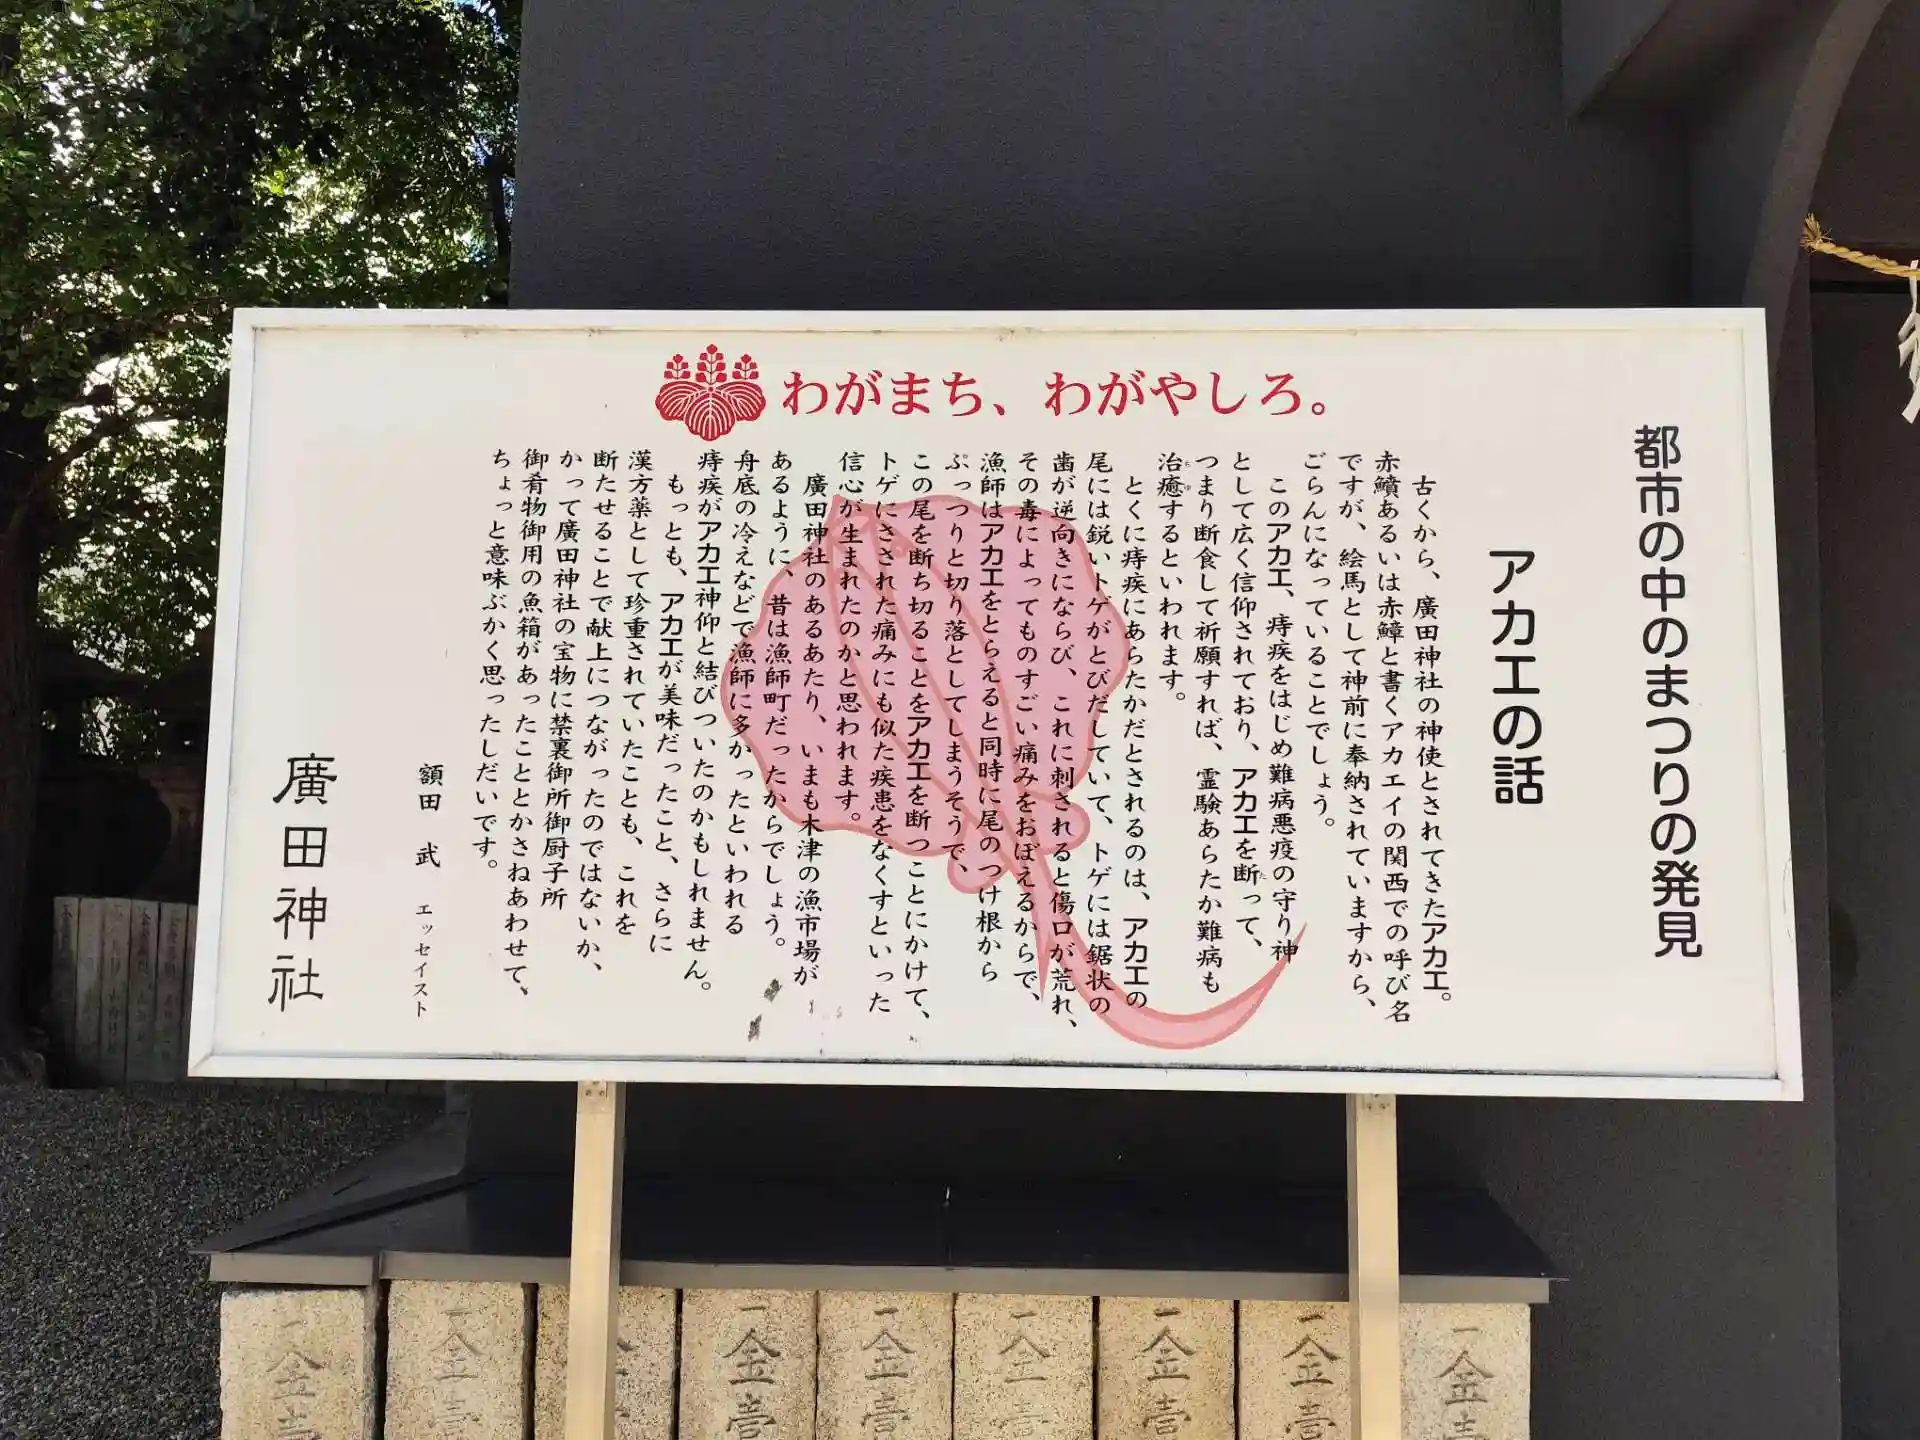 わがまち、わがやしろ。
都市の中のまつりの発見
アカエの話
古くから、廣田神社の神使とされてきたアカエ。
赤鱝あるいは赤鱏と書くアカエイの関西での呼び名
ですが、絵馬として神前に奉納されていますから、
ごらんになっていることでしょう。
このアカエ、痔疾をはじめ難病悪疫の守り神
として広く信仰されており、アカエを断って、
つまり断食して祈願すれば、霊験あらたか難病も
治癒するといわれます。
とくに痔疾にあらたかだとされるのは、アカエの
尾には鋭いトゲがとびだしていて、トゲには鋸状の
歯が逆向きにならび、これに刺されると傷口が荒れ、
その毒によってものすごい痛みをおぼえるからで、
漁師はアカエをとらえると同時に尾のつけ根から
ぷっつりと切り落としてしまうそうで、
この尾を断ち切ることをアカエを断つことにかけて、
トゲにさされた痛みにも似た疾患をなくすといった
信心が生まれたのかと思われます。
廣田神社のあるあたり、いまも木津の漁市場が
あるように、昔は漁師町だったからでしょう。
舟底の冷えなどで漁師に多かったといわれる
痔疾がアカエ神仰と結びついたのかもしれません。
もっとも、アカエが美味だったこと、さらに
漢方薬として珍重されていたことも、これを
断たせることで献上につながったのではないか、
かって廣田神社の宝物に禁裏御所御厨子所
御肴物御用の魚箱があったこととかさねあわせて、
ちょっと意味ぶかく思ったしだいです。
額田 武 エッセイスト
廣田神社
一金壱
一金壱
一金壱
一金壱
一金
一金壱
一金壱
一金壱